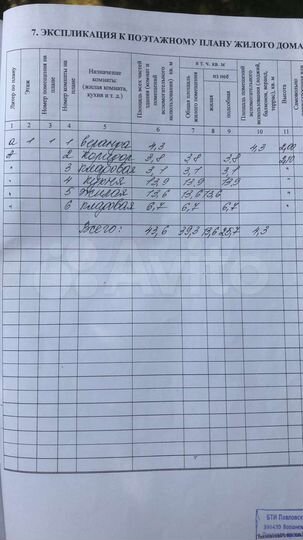 7. ЭКСПЛИКАЦИЯ К ПОЭТАЖНОМУ ПЛАНУ ЖИЛОГО ДОМА
Литер по плану
Этаж
Номер помещения на плане
Номер комнаты на плане
Назначение комнаты: (жилая комната, кухня и т. д.)
Площадь всех частей здания (комнат и помещений вспомогательного использования) кв. м
в т. ч. кв. м
Общая площадь жилого помещения
из неё
жилая
подсобная
Площадь помещений вспомогательного использования (лоджий, балконов, веранд, террас), кв. м
Высота
Самовольно
1 2 3 4 5 6 7 8 9 10 11
а 1 1 1 веранда 4,3 4,3 2,00
2 коридор 3,8 3,8 3,8 2,10
" 3 кладовая 3,1 3,1 3,1 "
" 4 кухня 13,9 13,9 13,9 "
" 5 жилая 13,6 13,6 13,6 "
" 6 кладовая 6,7 6,7 6,7 "
Всего: 43,6 39,3 13,6 25,7 4,3
Avito
БТИ Павловск